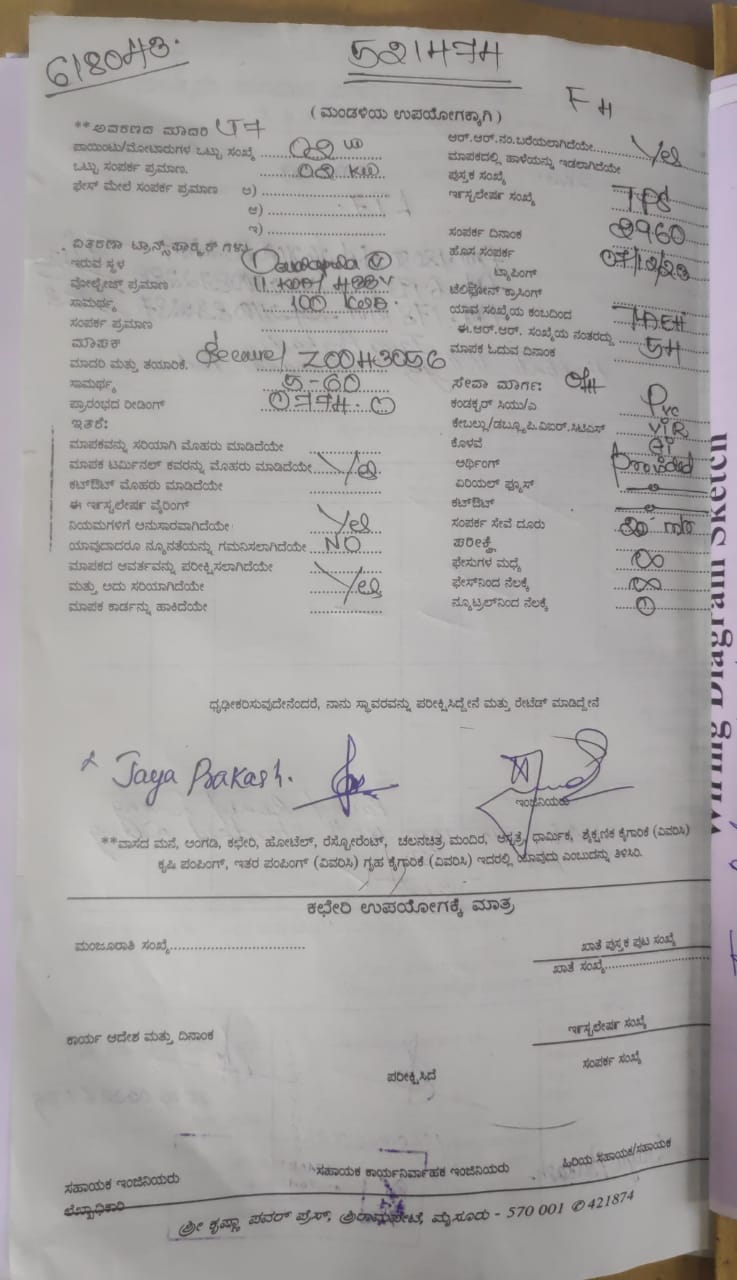 618043.
521474
FH
(ಮಂಡಳಿಯ ಉಪಯೋಗಕ್ಕಾಗಿ)
**ಆವರಣದ ಮಾದರಿ LT7
ಪಾಯಿಂಟು/ಮೋಟಾರುಗಳ ಒಟ್ಟು ಸಂಖ್ಯೆ
ಒಟ್ಟು ಸಂಪರ್ಕ ಪ್ರಮಾಣ. 02 KW
ಫೇಸ್ ಮೇಲೆ ಸಂಪರ್ಕ ಪ್ರಮಾಣ ಅ)
ಆ)
ಇ)
ವಿತರಣಾ ಟ್ರಾನ್ಸ್‌ಫಾರ್ಮರ್ ಗಳು
ಇರುವ ಸ್ಥಳ
ವೋಲ್ಟೇಜ್ ಪ್ರಮಾಣ
ಸಾಮರ್ಥ್ಯ 100
ಸಂಪರ್ಕ ಪ್ರಮಾಣ
ಮಾಪಕ
ಮಾದರಿ ಮತ್ತು ತಯಾರಿಕೆ. Secure/ Z0043056
ಸಾಮರ್ಥ್ಯ 5-60
ಪ್ರಾರಂಭದ ರೀಡಿಂಗ್ 0774.0
ಇತರೆ:
ಮಾಪಕವನ್ನು ಸರಿಯಾಗಿ ಮೊಹರು ಮಾಡಿದೆಯೇ
ಮಾಪಕ ಟರ್ಮಿನಲ್ ಕವರನ್ನು ಮೊಹರು ಮಾಡಿದೆಯೇ Yes
ಕಟ್‌ಔಟ್ ಮೊಹರು ಮಾಡಿದೆಯೇ
ಈ ಇನ್ಸ್ಟಲೇಷನ್ ವೈರಿಂಗ್
ನಿಯಮಗಳಿಗೆ ಅನುಸಾರವಾಗಿದೆಯೇ Yes
ಯಾವುದಾದರೂ ನ್ಯೂನತೆಯನ್ನು ಗಮನಿಸಲಾಗಿದೆಯೇ NO
ಮಾಪಕದ ಆವರ್ತವನ್ನು ಪರೀಕ್ಷಿಸಲಾಗಿದೆಯೇ
ಮತ್ತು ಅದು ಸರಿಯಾಗಿದೆಯೇ Yes
ಮಾಪಕ ಕಾರ್ಡನ್ನು ಹಾಕಿದೆಯೇ
ಆರ್.ಆರ್.ನಂ.ಬರೆಯಲಾಗಿದೆಯೇ Yes
ಮಾಪಕದಲ್ಲಿ ಹಾಳೆಯನ್ನು ಇಡಲಾಗಿದೆಯೇ
ಪುಸ್ತಕ ಸಂಖ್ಯೆ
ಇನ್ಸ್ಟಲೇಷನ್ ಸಂಖ್ಯೆ TPS
2960
ಸಂಪರ್ಕ ದಿನಾಂಕ 07/12/23
ಹೊಸ ಸಂಪರ್ಕ
ಟ್ಯಾಪಿಂಗ್
ಟೆಲಿಫೋನ್ ಕ್ರಾಸಿಂಗ್
ಯಾವ ಸಂಖ್ಯೆಯ ಕಂಬದಿಂದ
ಈ.ಆರ್.ಆರ್. ಸಂಖ್ಯೆಯ ನಂತರದ್ದು
ಮಾಪಕ ಓದುವ ದಿನಾಂಕ
ಸೇವಾ ಮಾರ್ಗ: OH
ಕಂಡಕ್ಟರ್ ಸಿಯು/ಎ Pvc
ಕೇಬಲ್ಲು/ಡಬ್ಲ್ಯೂ.ಪಿ.ಐಐಆರ್.ಸಿಟಿಎಸ್ VIR
ಕೊಳವೆ GI
ಅರ್ಥಿಂಗ್ Provided
ಏರಿಯಲ್ ಫ್ಯೂಸ್
ಕಟ್‌ಔಟ್
ಸಂಪರ್ಕ ಸೇವೆ ದೂರು
ಪರೀಕ್ಷೆ
ಫೇಸುಗಳ ಮಧ್ಯೆ ∞
ಫೇಸ್‌ನಿಂದ ನೆಲಕ್ಕೆ ∞
ನ್ಯೂಟ್ರಲ್‌ನಿಂದ ನೆಲಕ್ಕೆ 0
ಧೃಢೀಕರಿಸುವುದೇನೆಂದರೆ, ನಾನು ಸ್ಥಾವರವನ್ನು ಪರೀಕ್ಷಿಸಿದ್ದೇನೆ ಮತ್ತು ರೇಟೆಡ್ ಮಾಡಿದ್ದೇನೆ
Jaya Prakash.
ಇಂಜಿನಿಯರು
**ವಾಸದ ಮನೆ, ಅಂಗಡಿ, ಕಛೇರಿ, ಹೋಟೆಲ್, ರೆಸ್ಟೋರೆಂಟ್, ಚಲನಚಿತ್ರ ಮಂದಿರ, ಆಸ್ಪತ್ರೆ, ಧಾರ್ಮಿಕ, ಶೈಕ್ಷಣಿಕ ಕೈಗಾರಿಕೆ (ವಿವರಿಸಿ)
ಕೃಷಿ ಪಂಪಿಂಗ್, ಇತರ ಪಂಪಿಂಗ್ (ವಿವರಿಸಿ) ಗೃಹ ಕೈಗಾರಿಕೆ (ವಿವರಿಸಿ) ಇದರಲ್ಲಿ ಯಾವುದು ಎಂಬುದನ್ನು ತಿಳಿಸಿರಿ.
ಕಛೇರಿ ಉಪಯೋಗಕ್ಕೆ ಮಾತ್ರ
ಮಂಜೂರಾತಿ ಸಂಖ್ಯೆ
ಖಾತೆ ಪುಸ್ತಕ ಪುಟ ಸಂಖ್ಯೆ
ಖಾತೆ ಸಂಖ್ಯೆ
ಕಾರ್ಯ ಆದೇಶ ಮತ್ತು ದಿನಾಂಕ
ಇನ್ಸ್ಟಲೇಷನ್ ಸಂಖ್ಯೆ
ಸಂಪರ್ಕ ಸಂಖ್ಯೆ
ಪರೀಕ್ಷಿಸಿದೆ
ಸಹಾಯಕ ಇಂಜಿನಿಯರು
ಸಹಾಯಕ ಕಾರ್ಯನಿರ್ವಾಹಕ ಇಂಜಿನಿಯರು
ಹಿರಿಯ ಸಹಾಯಕ/ಸಹಾಯಕ
ಲೆಖ್ಖಾಧಿಕಾರಿ
ಶ್ರೀ ಕೃಷ್ಣಾ ಪವರ್ ಪ್ರೆಸ್, ಶ್ರೀರಾಮಪೇಟೆ, ಮೈಸೂರು - 570 001 ✆ 421874
Wiring Diagram Sketch